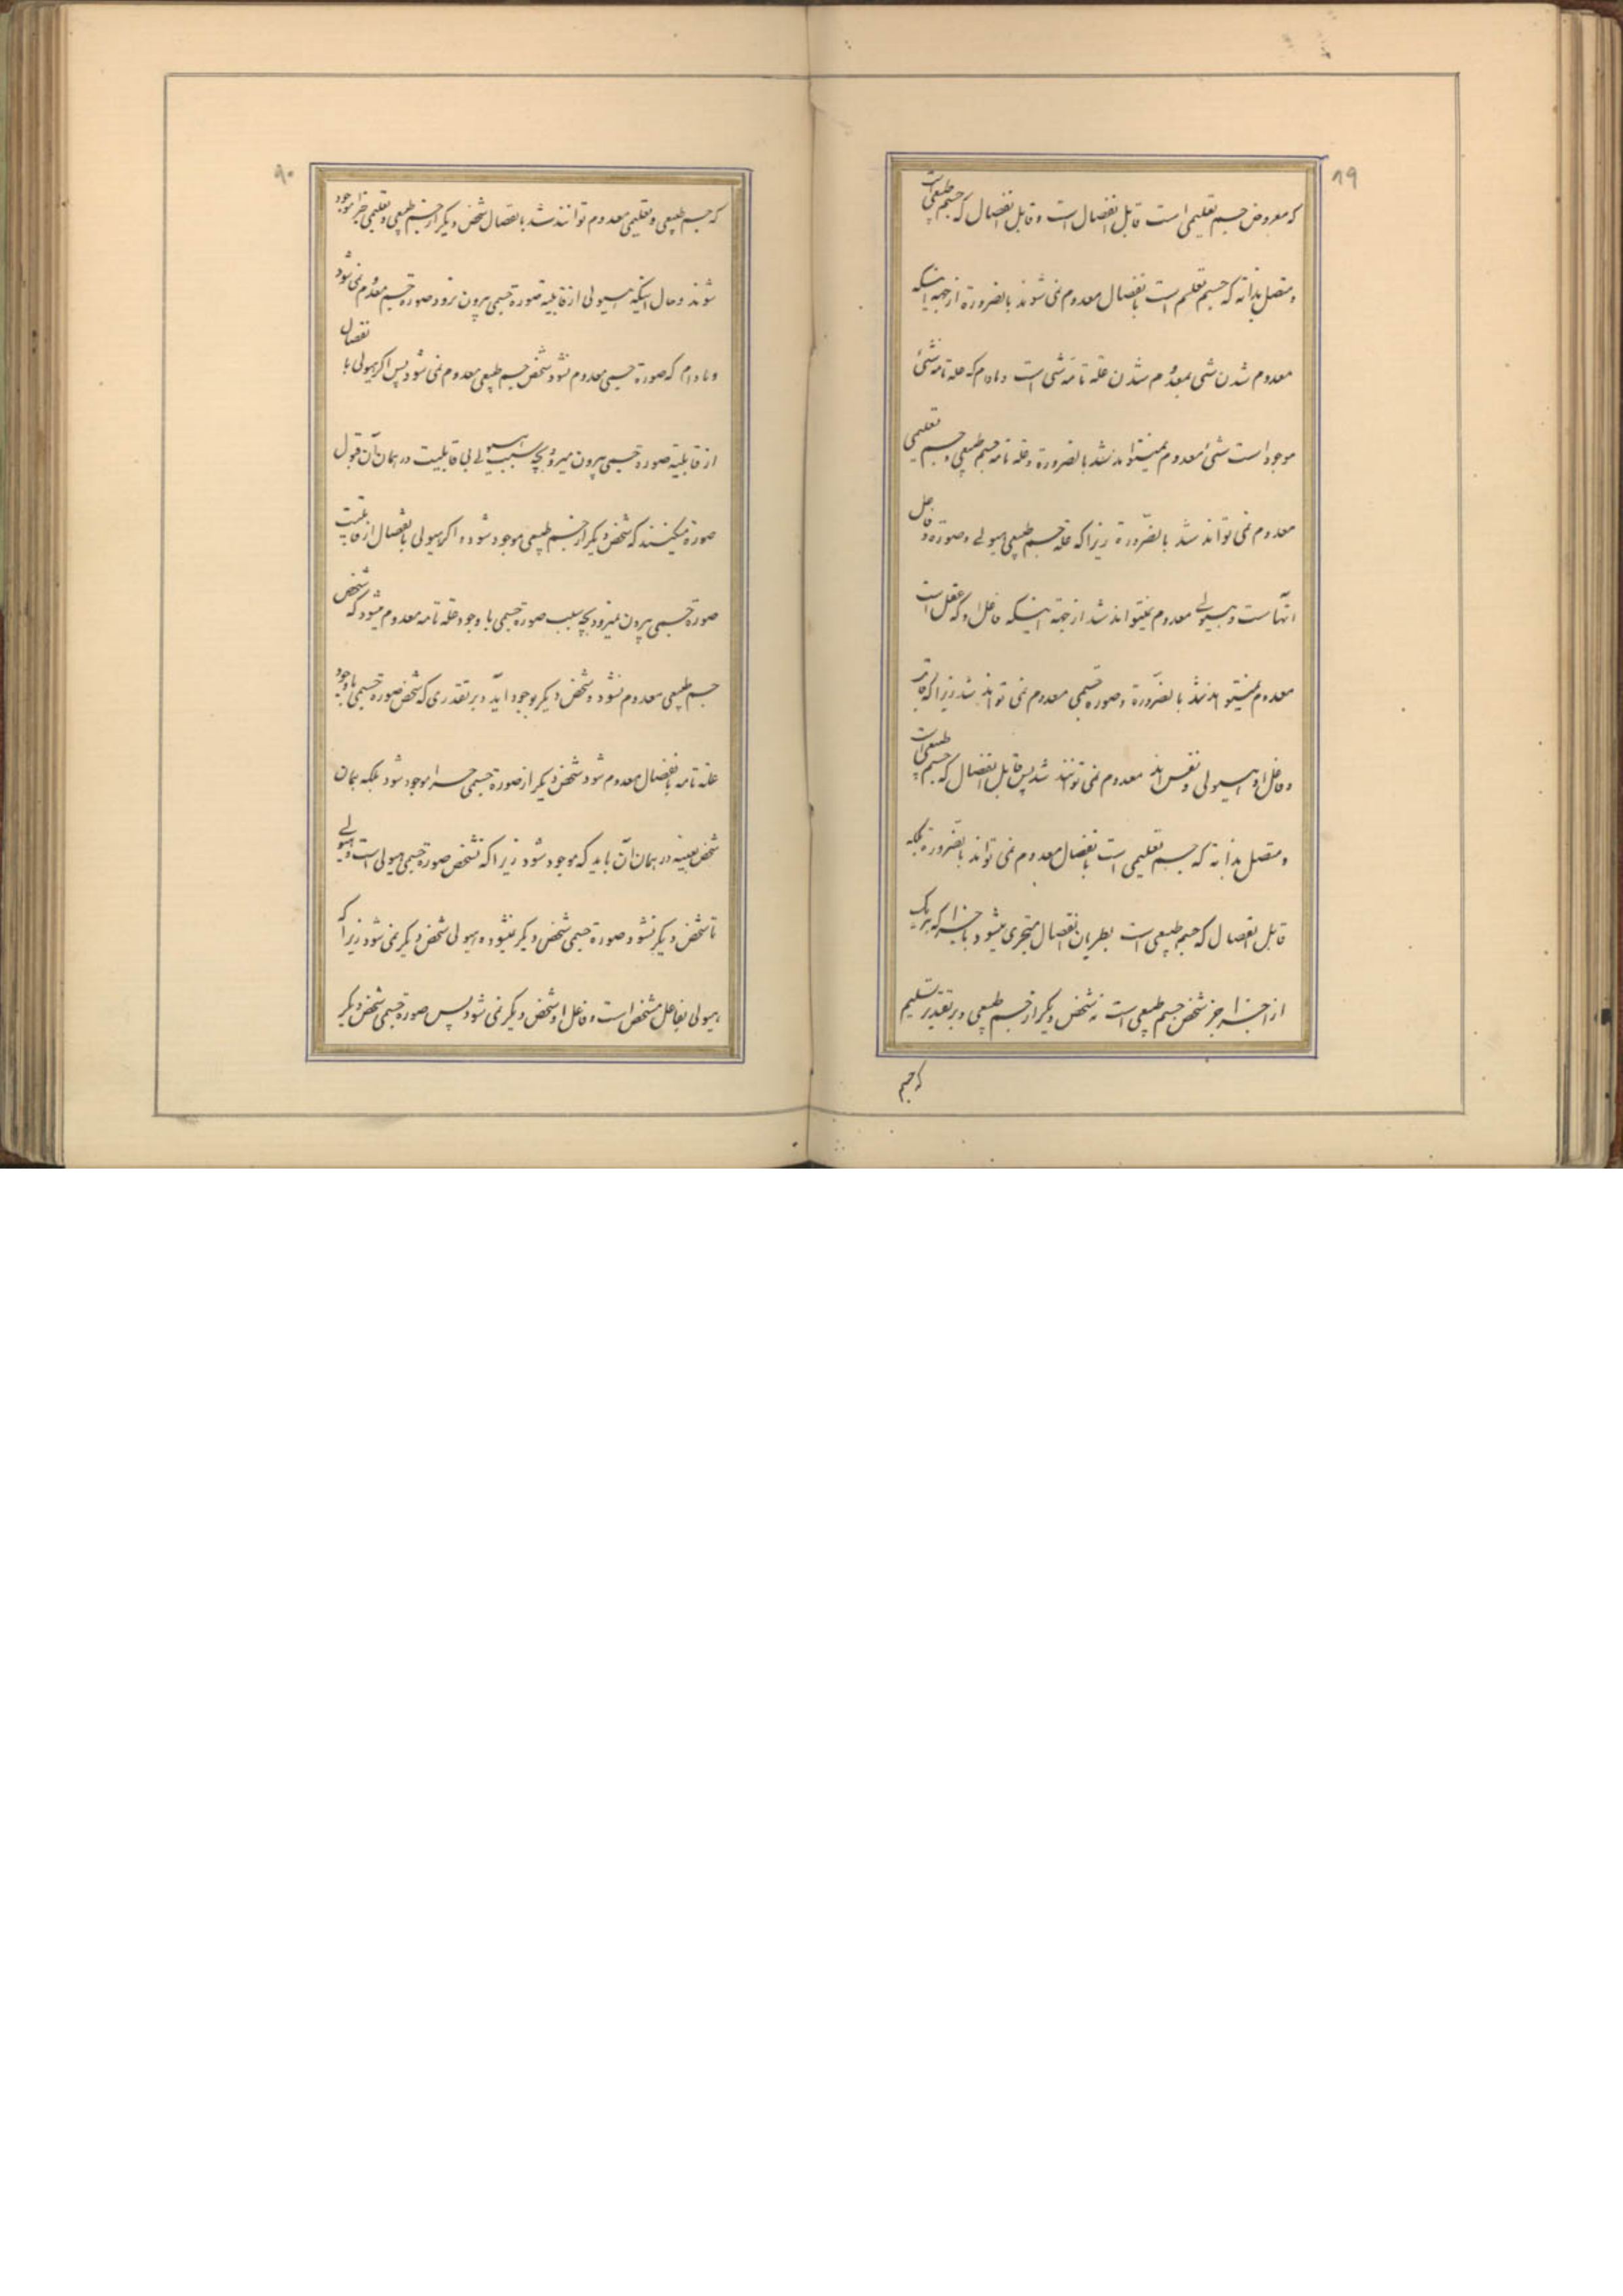 ۸۹
که معروض جسم تعلیمی است قابل انفصال است و قابل انفصال که جسم طبیعی است
و متصل بذاته که جسم تعلیم است بانفصال معدوم نمی شوند بالضرورة از جهة اینکه
معدوم شدن شی بمعدوم شدن علة تامه شی است و مادام که علة تامه شئ
موجود است شئ معدوم نمیتواند شد بالضرورة و علة تامه جسم طبیعی و جسم تعلیمی
معدوم نمی تواند شد بالضّرورة زیرا که علة جسم طبیعی هیولی و صورة و فاعل
انهاست و هیولی معدوم نمیتواند شد از جهة اینکه فاعل او که عقل است
معدوم نمیتواند شد بالضّرورة و صورة جسمی معدوم نمی تواند شد زیرا که قابل
و فاعل او هیولی و نفس اند معدوم نمی توانند شد پس قابل انفصال که جسم طبیعی است
و متصل بذاته که جسم تعلیمی است بانفصال معدوم نمی تواند بالضّرورة بلکه
قابل انفصال که جسم طبیعی است بطریان انفصال متجزی میشود باجزا که هر یک
از اجزا جز شخص جسم طبیعی است نه شخص دیگر از جسم طبیعی و بر تقدیر تسلیم
که جسم
۹۰
که جسم طبیعی و تعلیمی معدوم توانند شد بانفصال شخص دیگر از جسم طبیعی و تعلیمی چرا موجود
شوند و حال اینکه هیولی از قابلیة صورة جسمی بیرون نرود صورة جسم معدوم نمی شود
و مادام که صورة جسمی معدوم نشود شخص جسم طبیعی معدوم نمی شود پس اگر هیولی با نفصال
از قابلیة صورة جسمی بیرون میرود بچه سبب هیولی بی قابلیت در همان آن قبول
صورة میکند که شخص دیگر از جسم طبیعی موجود شود و اگر هیولی بانفصال از قابلیت
صورة جسمی بیرون نمیرود بچه سبب صورة جسمی با وجود علة تامه معدوم میشود که شخص
جسم طبیعی معدوم نشود و شخص دیگر بوجود آید و بر تقدیری که شخص صورة جسمی باوجود
علة تامه بانفصال معدوم شود شخص دیگر از صورة جسمی چرا موجود شود بلکه همان
شخص بعینه در همان آن باید که موجود شود زیرا که تشخص صورة جسمی هیولی است و هیولی
تا شخص دیگر نشود صورة جسمی شخص دیگر نمیشود و هیولی شخص دیگر نمی شود زیرا که
هیولی بفاعل مشخص است و فاعل او شخص دیگر نمی شود پس صورة جسمی شخص دیگر